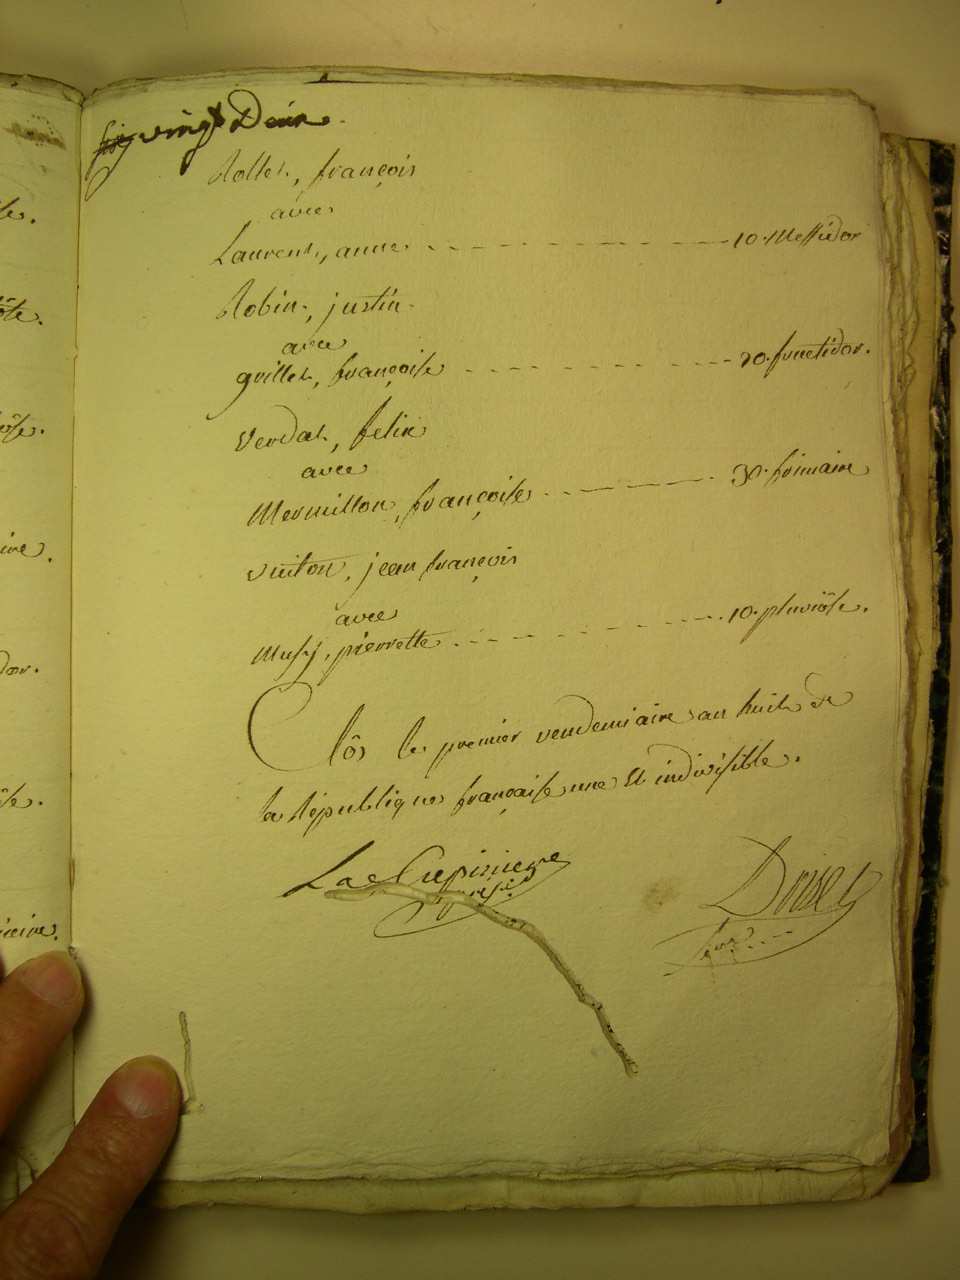 vingt Deux.
Rollet, françois
avec
Laurent, anne 10. Messidor
Robin, justin
avec
grillet, françoise 20. fructidor.
Verdat, felix
avec
Mermillon, françoise 30. frimaire
Vuiton, jean françois
avec
Mussy, pierrette 10. pluviôse.
Clôs le premier vendemiaire an huit de
la République française une et indivisible.
presid.
secr.